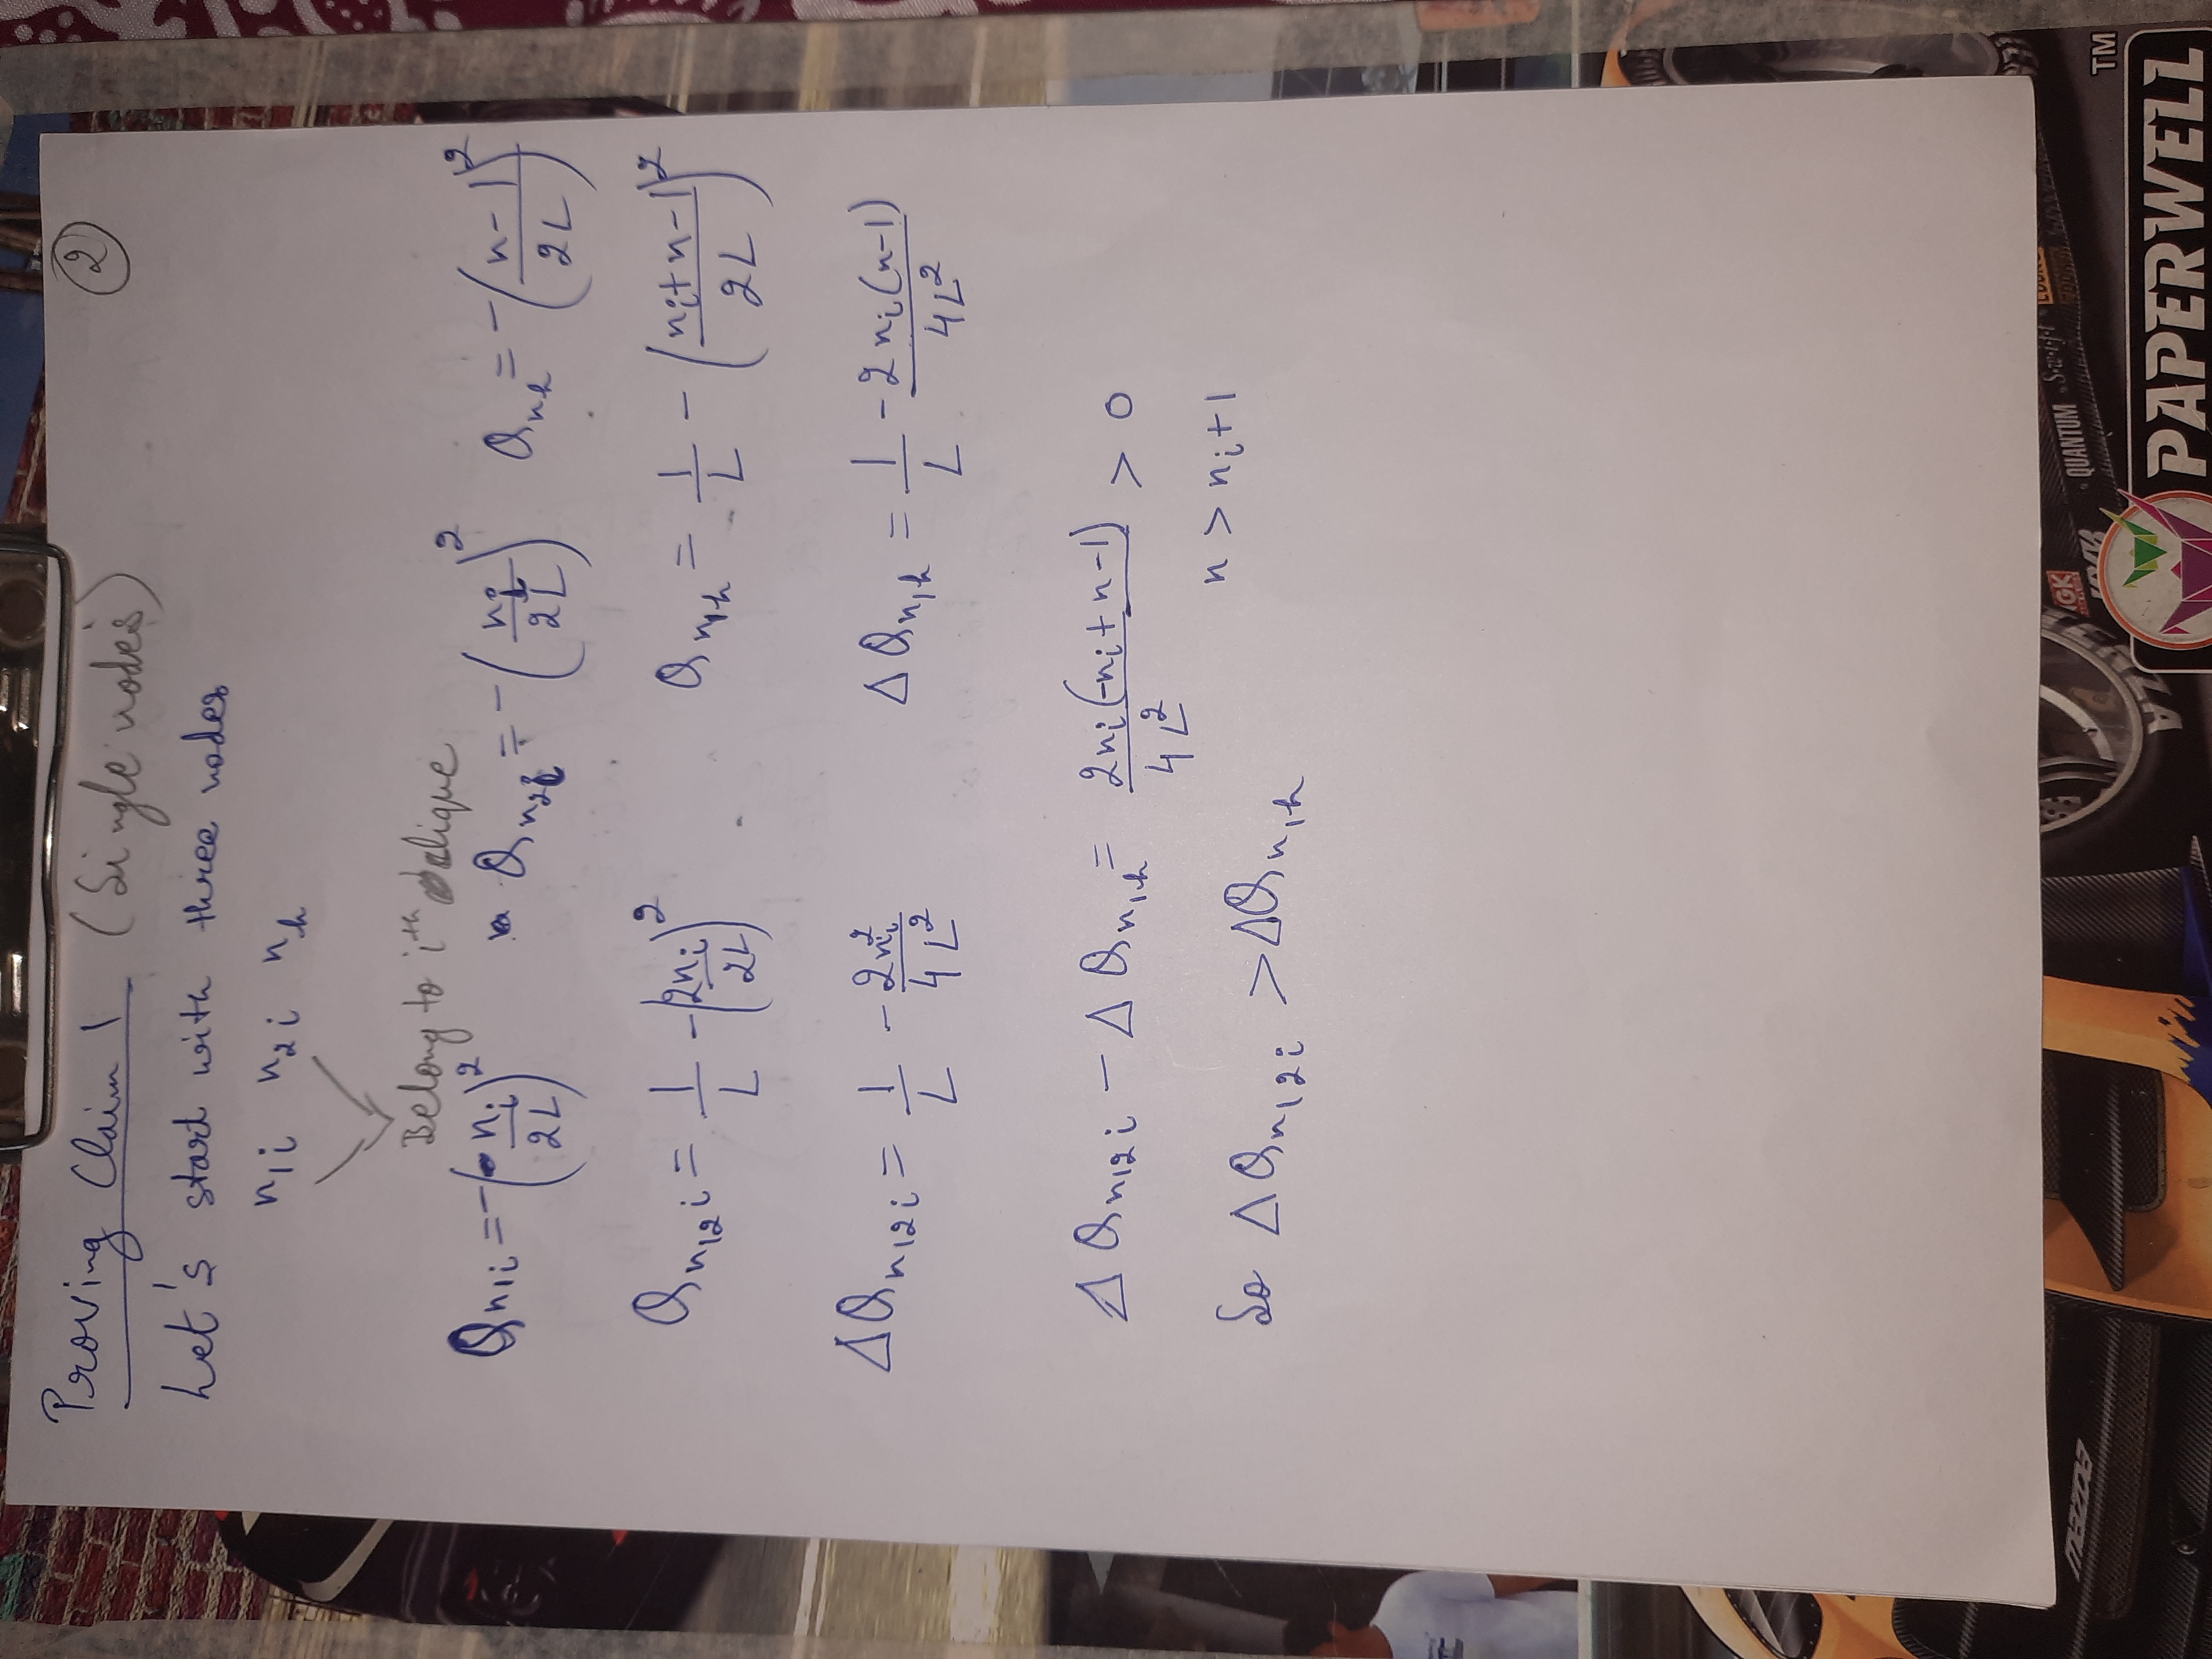 Proving Claim 1 (Single nodes) 2
Let's start with three nodes
n₁i n₂i n_h
Belong to iᵗʰ clique
Q_n₁i = -(n_i/2L)² Q_n₂i = -(n_i/2L)² Q_n_h = -((n-1)/2L)²
Q_n₁₂i = 1/L - (2n_i/2L)² Q_n₁h = 1/L - ((n_i+n-1)/2L)²
ΔQ_n₁₂i = 1/L - 2n_i²/4L² ΔQ_n₁h = 1/L - 2n_i(n-1)/4L²
ΔQ_n₁₂i - ΔQ_n₁h = 2n_i(-n_i+n-1)/4L² > 0
n > n_i+1
So ΔQ_n₁₂i > ΔQ_n₁h
mazda
NGK
QUANTUM
Swift
TM
PAPERWELL